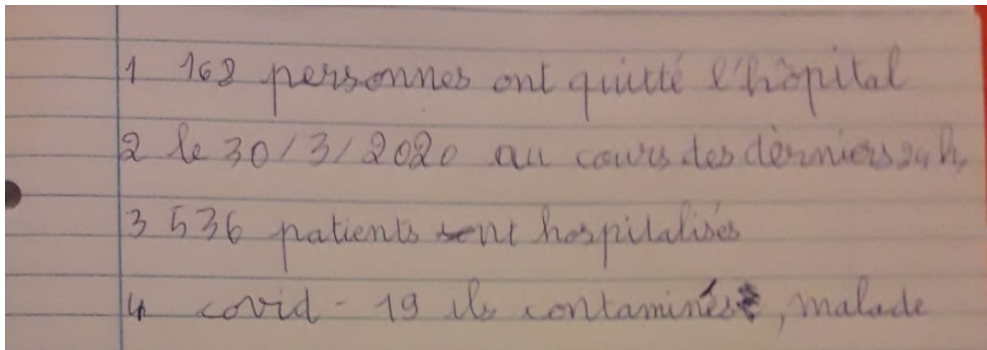 1 168 personnes ont quitté l'hôpital
2 le 30/3/2020 au cours des dèrniers 24h,
3 536 patients sont hospitalisés
4 covid-19 ils contaminés, malade